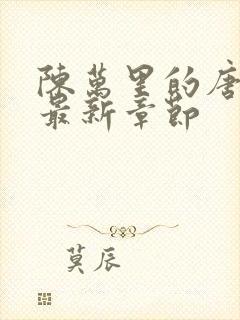 陳萬里的唐
最新章節
莫辰